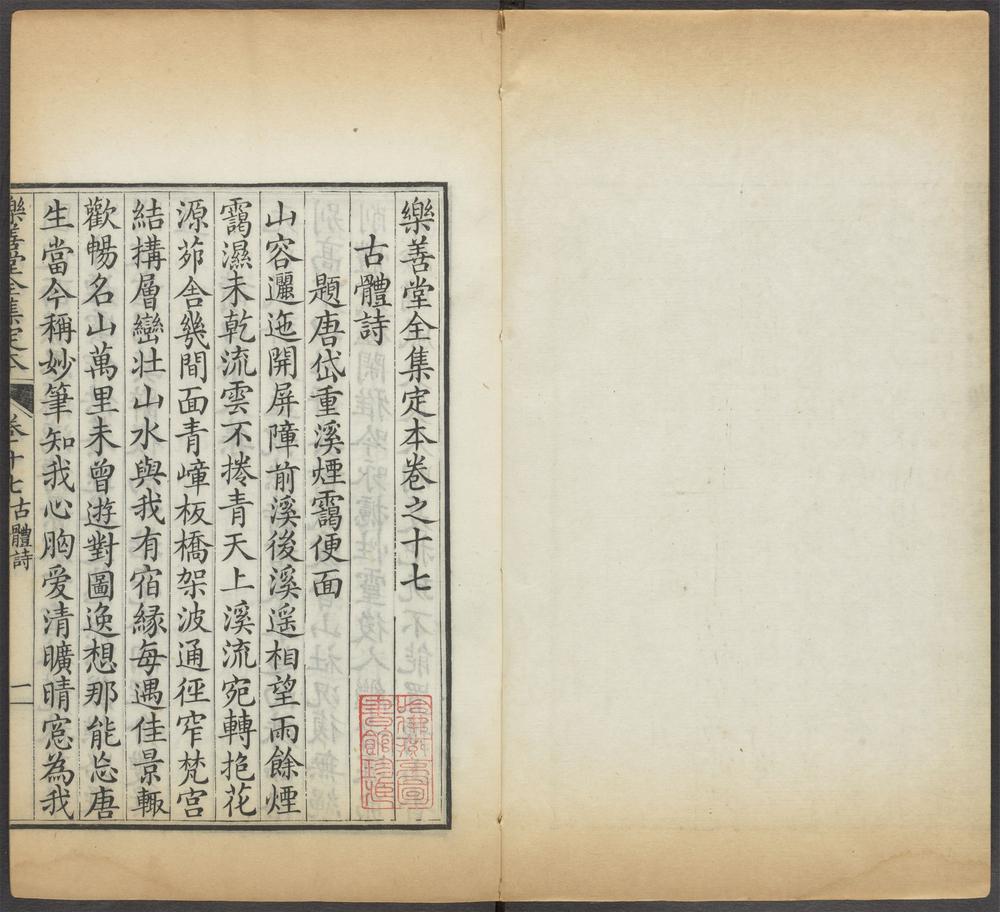 樂善堂全集定本卷之十七
古體詩
題唐岱重溪煙靄便面
山容邐迤開屏障前溪後溪遥相望雨餘煙
靄濕未乾流雲不捲青天上溪流宛轉抱花
源茆舍幾間面青嶂板橋架波通徑窄梵宫
結搆層巒壯山水與我有宿緣每遇佳景輙
歡暢名山萬里未曽遊對圖逸想那能忘唐
生當今稱妙筆知我心胸爱清曠晴窓為我
樂善堂全集定本
卷十七古體詩
一
哈佛燕京圖
書館珍